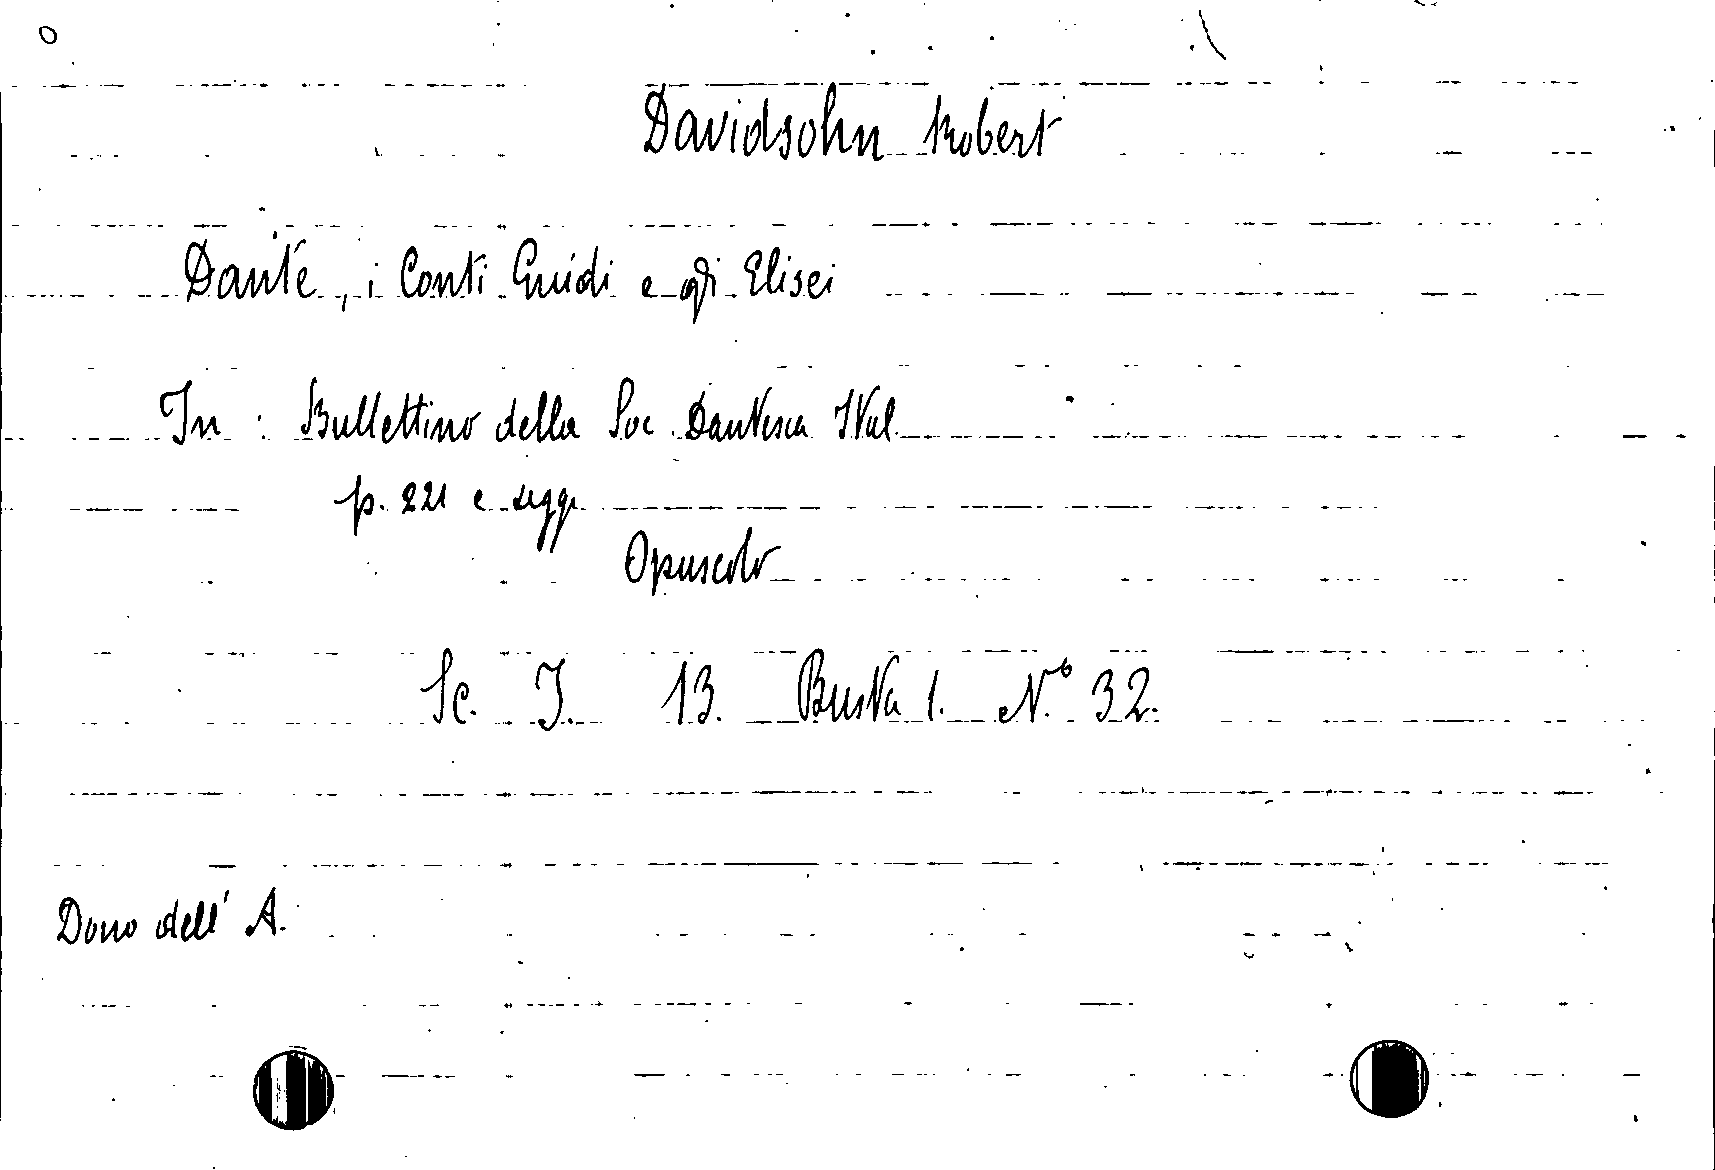 Davidsohn Robert
Dante, i Conti Guidi e gli Elisei
In: Bullettino della Soc. Dantesca Ital.
p. 221 e segg.
Opuscolo
Sc. I. 13. Busta 1. N.° 32.
Dono dell' A.